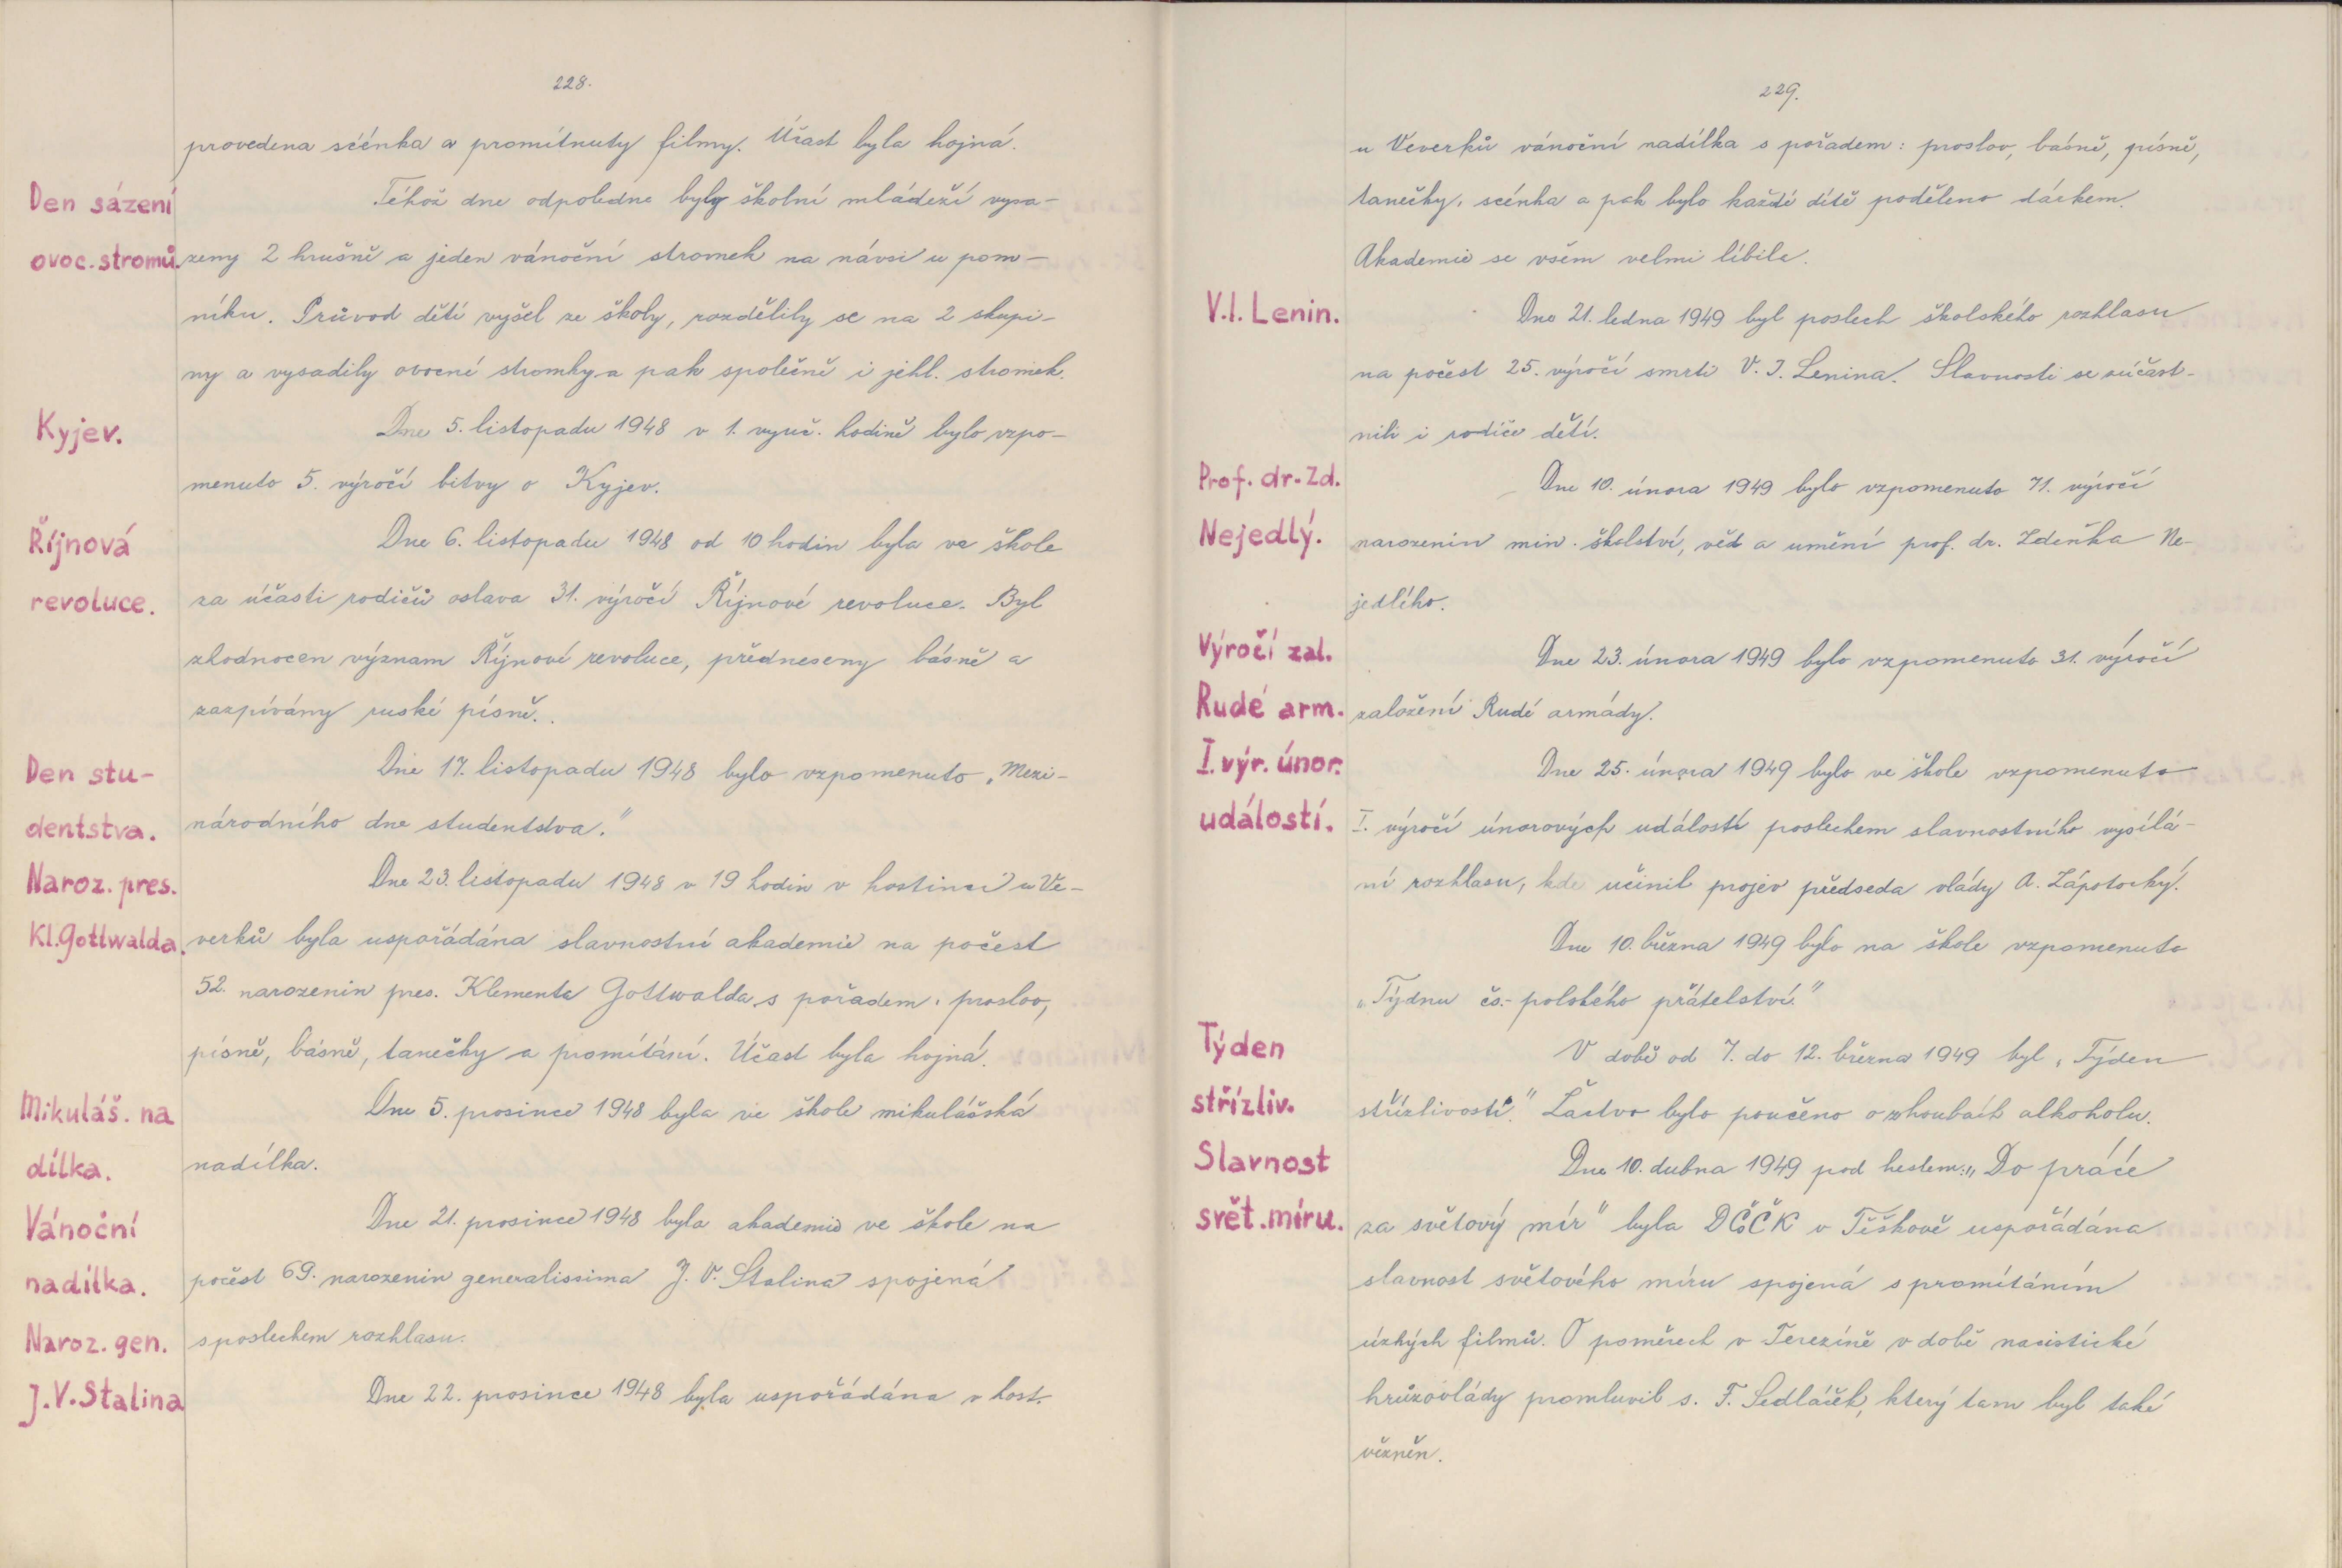 228.
provedena scénka a promítnuty filmy. Účast byla hojná.
Den sázení
Téhož dne odpoledne byly školní mládeží vysa-
ovoc. stromů.
zeny 2 hrušně a jeden vánoční stromek na návsi u pom-
níku. Průvod dětí vyšel ze školy, rozdělily se na 2 skupi-
ny a vysadily ovocné stromky a pak společně i jehl. stromek.
Kyjev.
Dne 5. listopadu 1948 v 1. vyuč. hodině bylo vzpo-
menuto 5. výročí bitvy o Kyjev.
Říjnová
Dne 6. listopadu 1948 od 10 hodin byla ve škole
revoluce.
za účasti rodičů oslava 31. výročí Říjnové revoluce. Byl
zhodnocen význam Říjnové revoluce, předneseny básně a
zazpívány ruské písně.
Den stu-
Dne 17. listopadu 1948 bylo vzpomenuto „Mezi-
dentstva.
národního dne studentstva."
Naroz. pres.
Dne 23. listopadu 1948 v 19 hodin v hostinci u Ve-
Kl. Gottwalda.
verků byla uspořádána slavnostní akademie na počest
52. narozenin pres. Klementa Gottwalda s pořadem: proslov,
písně, básně, tanečky a promítání. Účast byla hojná.
Mikuláš. na
Dne 5. prosince 1948 byla ve škole mikulášská
dílka.
nadílka.
Vánoční
Dne 21. prosince 1948 byla akademie ve škole na
nadílka.
počest 69. narozenin generalissima J. V. Stalina spojená
Naroz. gen.
s poslechem rozhlasu.
J. V. Stalina
Dne 22. prosince 1948 byla uspořádána v host.
229.
u Veverků vánoční nadílka s pořadem: proslov, básně, písně,
tanečky, scénka a pak bylo každé dítě poděleno dárkem.
Akademie se všem velmi líbila.
V. I. Lenin.
Dne 21. ledna 1949 byl poslech školského rozhlasu
na počest 25. výročí smrti V. I. Lenina. Slavnosti se súčast-
nili i rodiče dětí.
Prof. dr. Zd.
Dne 10. února 1949 bylo vzpomenuto 71. výročí
Nejedlý.
narozenin min. školství, věd a umění prof. dr. Zdeňka Ne-
jedlého.
Výročí zal.
Dne 23. února 1949 bylo vzpomenuto 31. výročí
Rudé arm.
založení Rudé armády.
I. výr. únor.
Dne 25. února 1949 bylo ve škole vzpomenuto
událostí.
I. výročí únorových událostí poslechem slavnostního vysílá-
ní rozhlasu, kde učinil projev předseda vlády A. Zápotocký.
Dne 10. března 1949 bylo na škole vzpomenuto
„Týdnu čs.-polského přátelství."
Týden
V době od 7. do 12. března 1949 byl „Týden
střízliv.
střízlivosti." Žactvo bylo poučeno o zhoubách alkoholu.
Slavnost
Dne 10. dubna 1949 pod heslem: „Do práce
svět. míru.
za světový mír" byla DČČK v Těškově uspořádána
slavnost světového míru spojená s promítáním
úzkých filmů. O poměrech v Terezíně v době nacistické
hrůzovlády promluvil s. F. Sedláček, který tam byl také
vězněn.